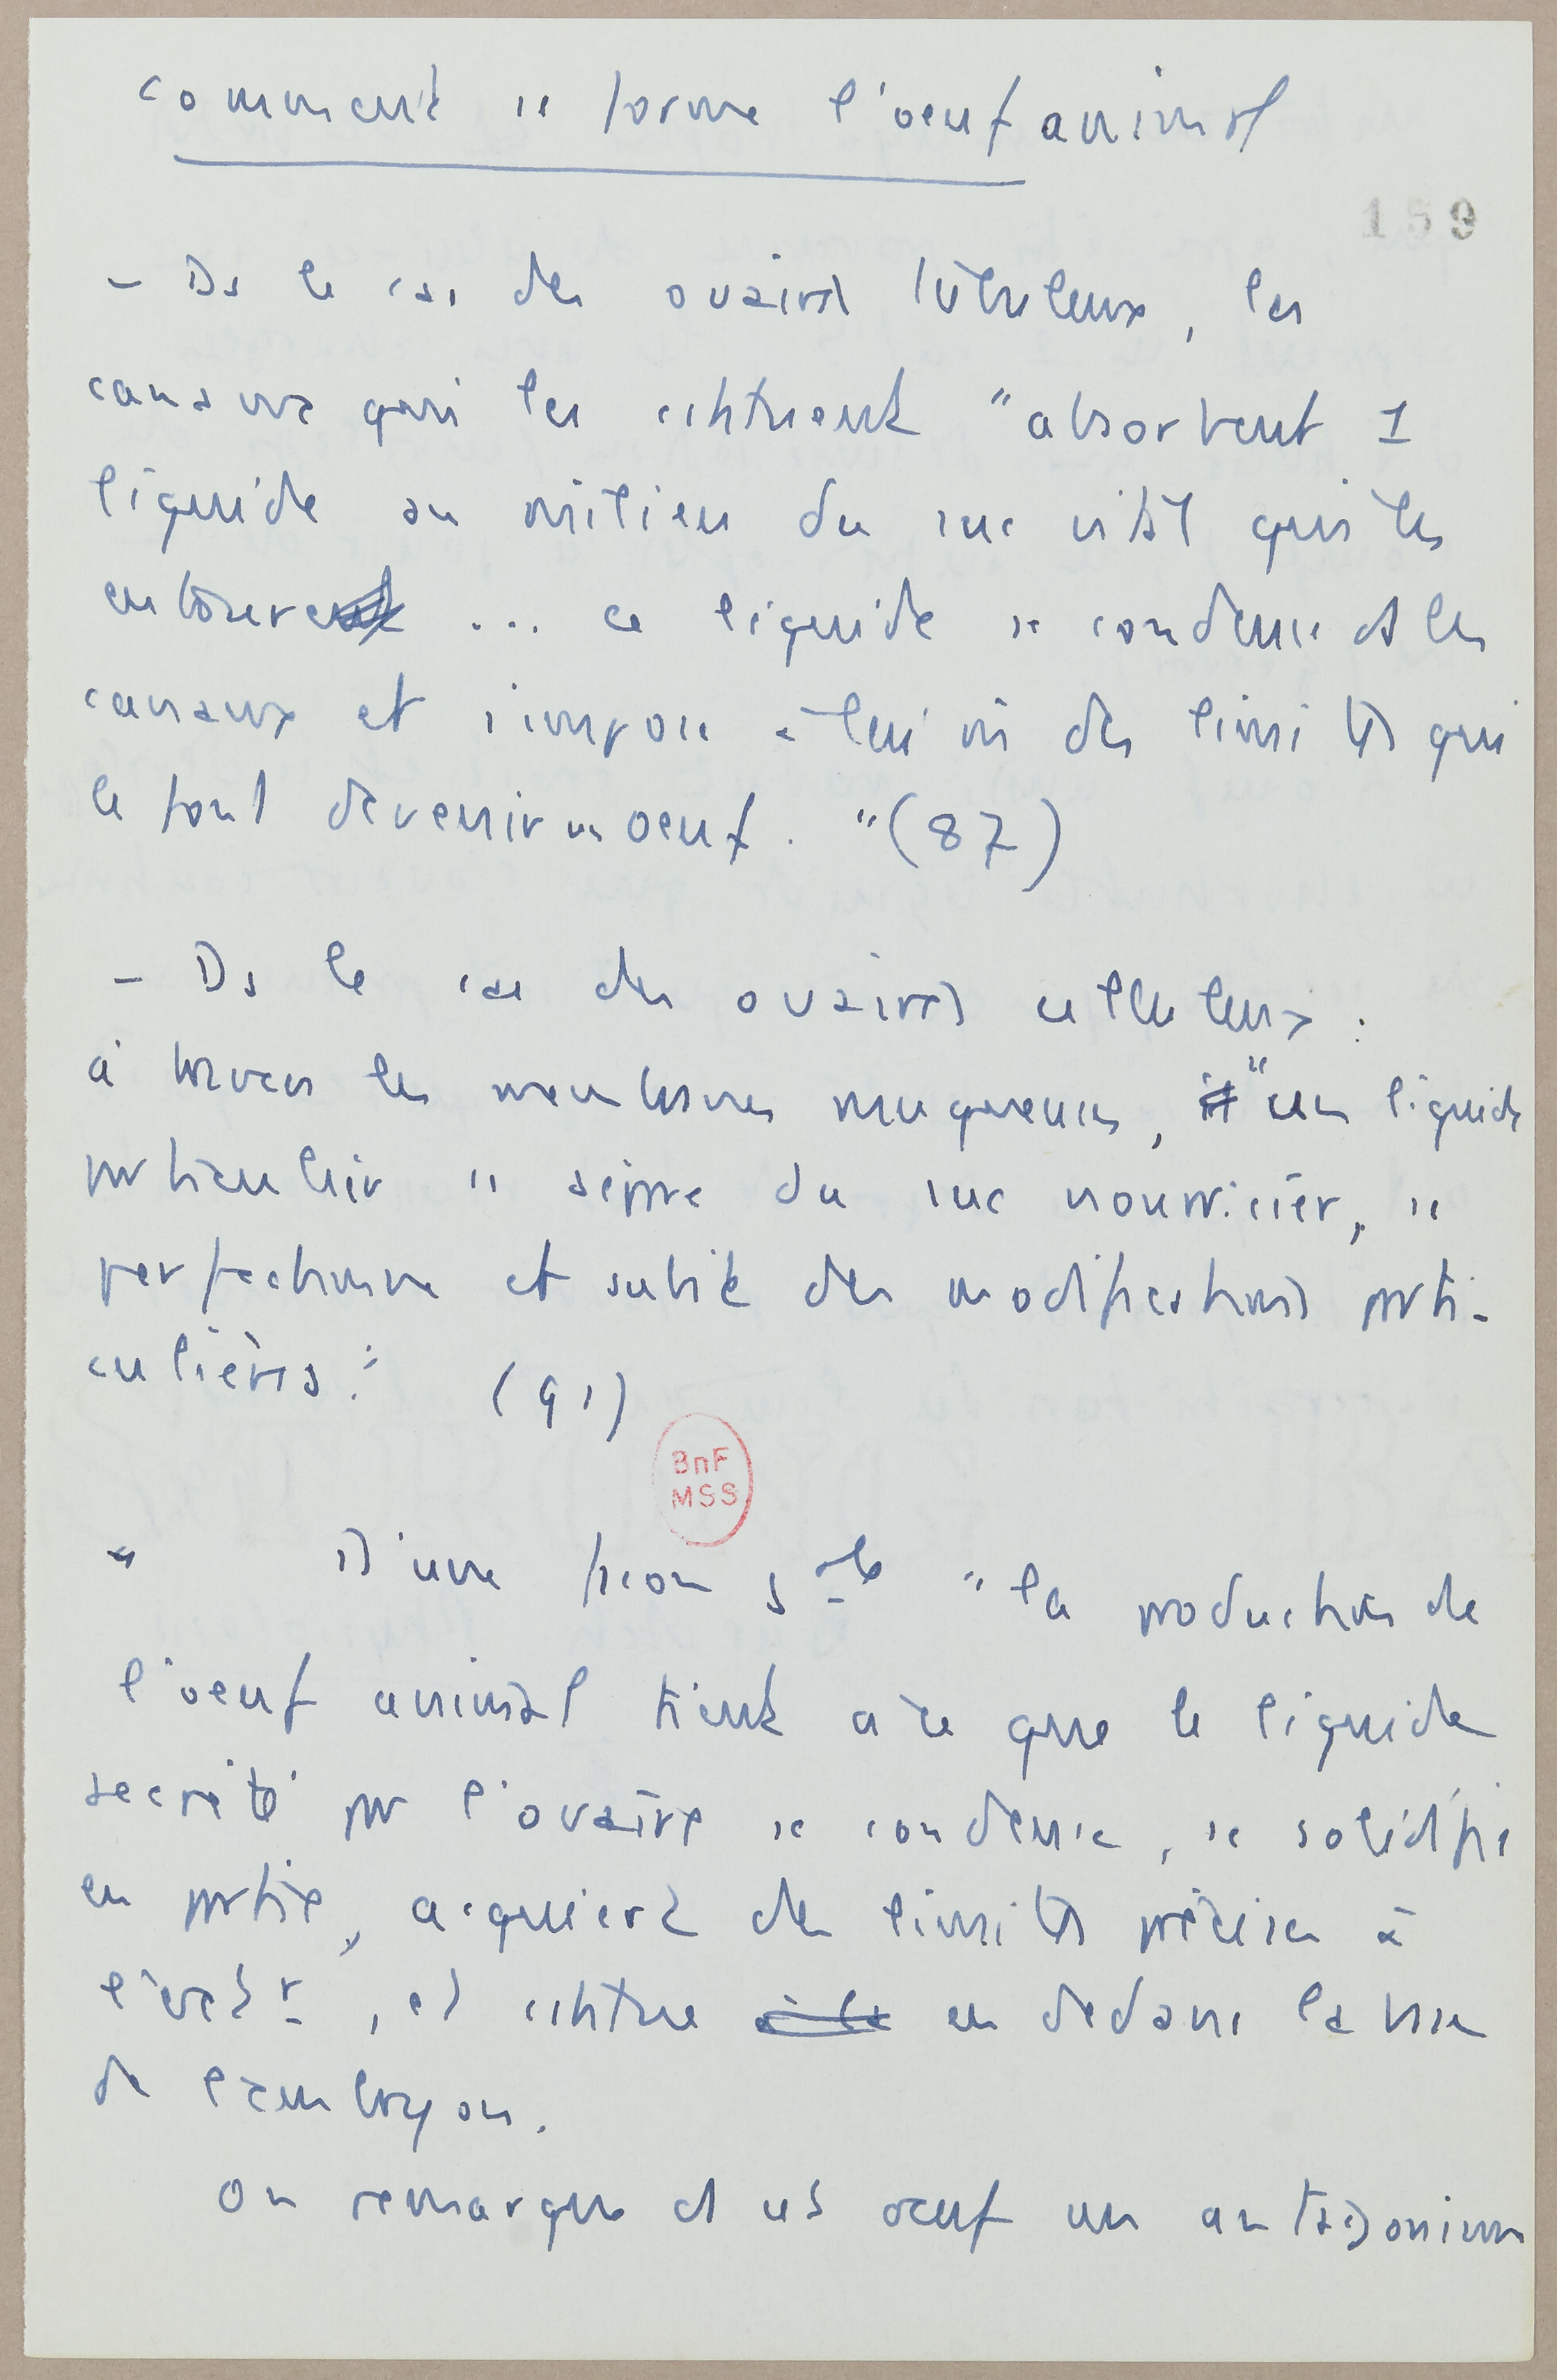 comment se forme l'oeuf animal
159
- Ds le cas des ovaires tubuleux, les
canaux qui les constituent "absorbent 1
liquide au milieu du suc vital qui les
entoure ... ce liquide se condense ds les
canaux et s'impose à lui-m des limites qui
le font devenir un oeuf. "(87)
- Ds le cas des ovaires celluleux :
à travers les membranes muqueuses, "un liquide
particulier se sépare du suc nourricier, se
perfectionne et subit des modifications parti-
culières." (91)
- D'une façon gale "la production de
l'oeuf animal tient à ce que le liquide
secrété par l'ovaire se condense, se solidifie
en partie, acquiert des limites précises à
l'extr, et constitue en dedans la base
de l'embryon.
On remarque ds cet oeuf un antagonisme
BnF
MSS